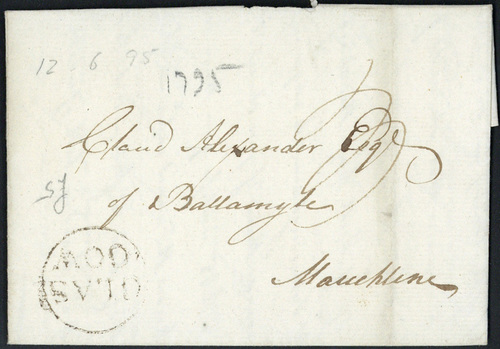 12 6 95
1795
Claud Alexander Esqr
of Ballamyle
Mauchline
GLAS
GOW